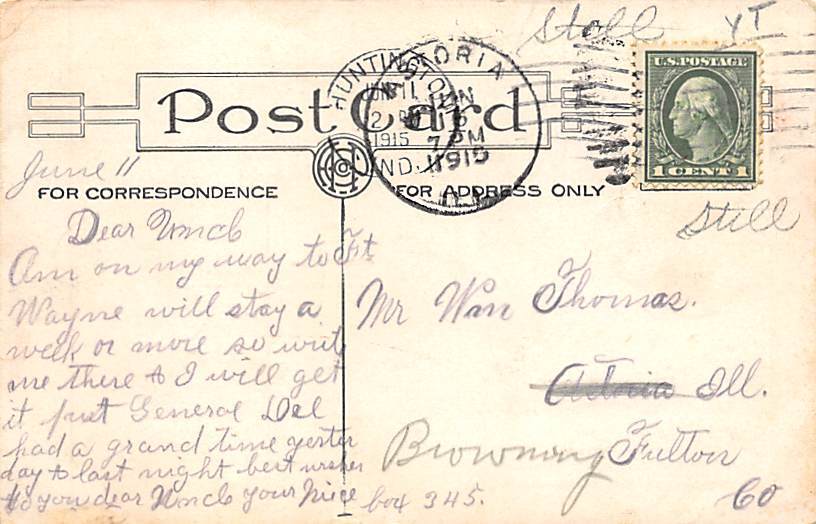 Still
U.S. POSTAGE
1 CENT 1
HUNTINGTON
JUN 11
2 PM
1915
IND.
ASTORIA
JUN
7 PM
1915
ILL.
Post Card
June 11
FOR CORRESPONDENCE
FOR ADDRESS ONLY
Still
Dear Uncle
Am on my way to Ft
Wayne will stay a
week or more so write
me there & I will get
it just General Del
had a grand time yester
day & last night best wishes
to you dear Uncle your Niece
box 345.
Mr Wm Thomas.
Astoria Ill.
Browning Fulton
Co